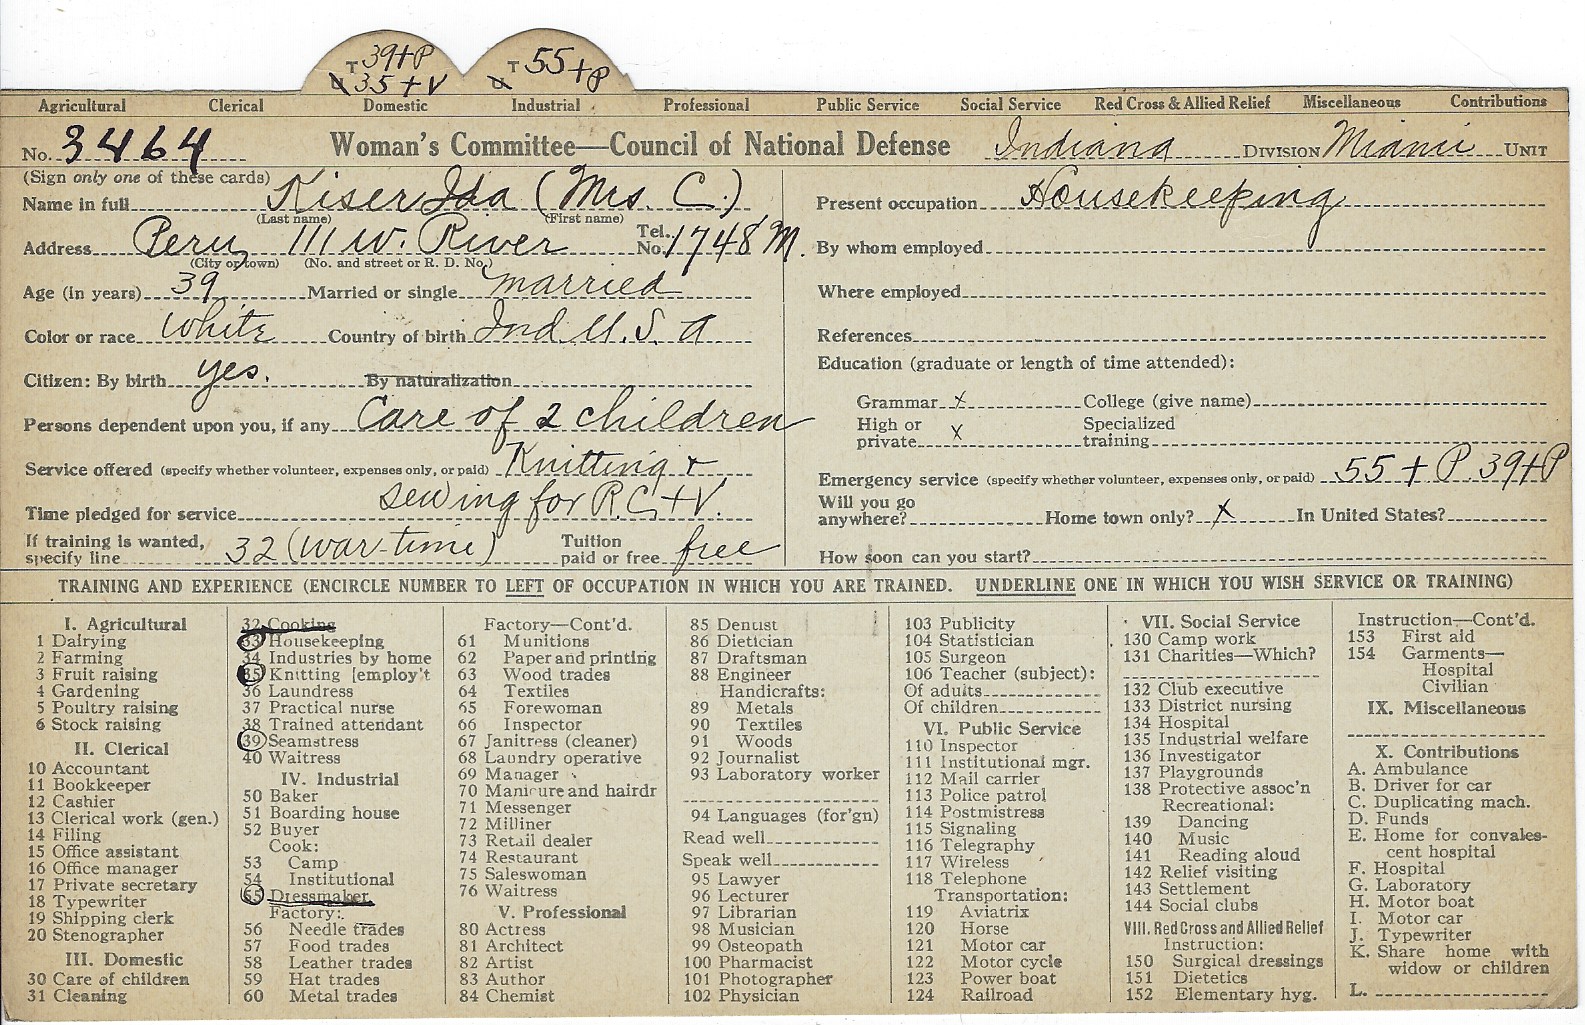 T 39+P
V 35+V
T 55+P
V
Agricultural Clerical Domestic Industrial Professional Public Service Social Service Red Cross & Allied Relief Miscellaneous Contributions
No. 3464 Woman's Committee—Council of National Defense Indiana DIVISION Miami UNIT
(Sign only one of these cards)
Name in full Kiser Ida (Mrs. C.)
(Last name) (First name)
Address Peru 111 W. River Tel. No. 1748 M.
(City or town) (No. and street or R. D. No.)
Age (in years) 39 Married or single married
Color or race White Country of birth Ind U.S.A
Citizen: By birth yes. By naturalization
Persons dependent upon you, if any Care of 2 children
Service offered (specify whether volunteer, expenses only, or paid) Knitting +
sewing for R.C. + V.
Time pledged for service
If training is wanted, specify line 32 (war-time) Tuition paid or free free
Present occupation Housekeeping
By whom employed
Where employed
References
Education (graduate or length of time attended):
Grammar x College (give name)
High or private x Specialized training
Emergency service (specify whether volunteer, expenses only, or paid) 55 + P 39+P
Will you go anywhere? Home town only? x In United States?
How soon can you start?
TRAINING AND EXPERIENCE (ENCIRCLE NUMBER TO LEFT OF OCCUPATION IN WHICH YOU ARE TRAINED. UNDERLINE ONE IN WHICH YOU WISH SERVICE OR TRAINING)
I. Agricultural
1 Dairying
2 Farming
3 Fruit raising
4 Gardening
5 Poultry raising
6 Stock raising
II. Clerical
10 Accountant
11 Bookkeeper
12 Cashier
13 Clerical work (gen.)
14 Filing
15 Office assistant
16 Office manager
17 Private secretary
18 Typewriter
19 Shipping clerk
20 Stenographer
III. Domestic
30 Care of children
31 Cleaning
32 Cooking
33 Housekeeping
34 Industries by home
35 Knitting [employ't
36 Laundress
37 Practical nurse
38 Trained attendant
39 Seamstress
40 Waitress
IV. Industrial
50 Baker
51 Boarding house
52 Buyer
Cook:
53 Camp
54 Institutional
55 Dressmaker
Factory:
56 Needle trades
57 Food trades
58 Leather trades
59 Hat trades
60 Metal trades
Factory—Cont'd.
61 Munitions
62 Paper and printing
63 Wood trades
64 Textiles
65 Forewoman
66 Inspector
67 Janitress (cleaner)
68 Laundry operative
69 Manager
70 Manicure and hairdr
71 Messenger
72 Milliner
73 Retail dealer
74 Restaurant
75 Saleswoman
76 Waitress
V. Professional
80 Actress
81 Architect
82 Artist
83 Author
84 Chemist
85 Dentist
86 Dietician
87 Draftsman
88 Engineer
Handicrafts:
89 Metals
90 Textiles
91 Woods
92 Journalist
93 Laboratory worker
94 Languages (for'gn)
Read well
Speak well
95 Lawyer
96 Lecturer
97 Librarian
98 Musician
99 Osteopath
100 Pharmacist
101 Photographer
102 Physician
103 Publicity
104 Statistician
105 Surgeon
106 Teacher (subject):
Of adults
Of children
VI. Public Service
110 Inspector
111 Institutional mgr.
112 Mail carrier
113 Police patrol
114 Postmistress
115 Signaling
116 Telegraphy
117 Wireless
118 Telephone
Transportation:
119 Aviatrix
120 Horse
121 Motor car
122 Motor cycle
123 Power boat
124 Railroad
VII. Social Service
130 Camp work
131 Charities—Which?
132 Club executive
133 District nursing
134 Hospital
135 Industrial welfare
136 Investigator
137 Playgrounds
138 Protective assoc'n
Recreational:
139 Dancing
140 Music
141 Reading aloud
142 Relief visiting
143 Settlement
144 Social clubs
VIII. Red Cross and Allied Relief
Instruction:
150 Surgical dressings
151 Dietetics
152 Elementary hyg.
Instruction—Cont'd.
153 First aid
154 Garments—
Hospital
Civilian
IX. Miscellaneous
X. Contributions
A. Ambulance
B. Driver for car
C. Duplicating mach.
D. Funds
E. Home for convales-
cent hospital
F. Hospital
G. Laboratory
H. Motor boat
I. Motor car
J. Typewriter
K. Share home with
widow or children
L.